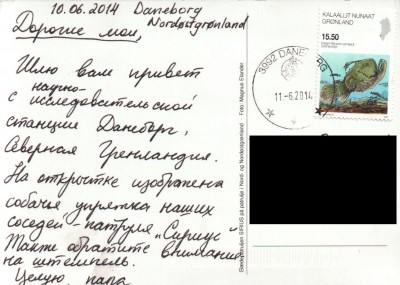 10.06.2014 Daneborg
Nordostgrønland
Дорогие мои,
Шлю вам привет
научно-
с исследовательской
станции Данеборг,
Северная Гренландия.
На открытке изображена
собачья упряжка наших
соседей - патруля „Сириус"
Также обратите внимание
на штемпель.
Целую, папа
Slædepatruljen SIRIUS på patrulje i Nord- og Nordøstgrønland Foto: Magnus Elander
3992 DANEBORG
11.-6.2014
KALAALLIT NUNAAT
GRØNLAND
15.50